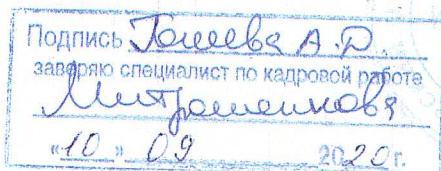 Подпись Голева А.Д.
заверяю специалист по кадровой работе
Митрошенкова
«10» 09 2020г.